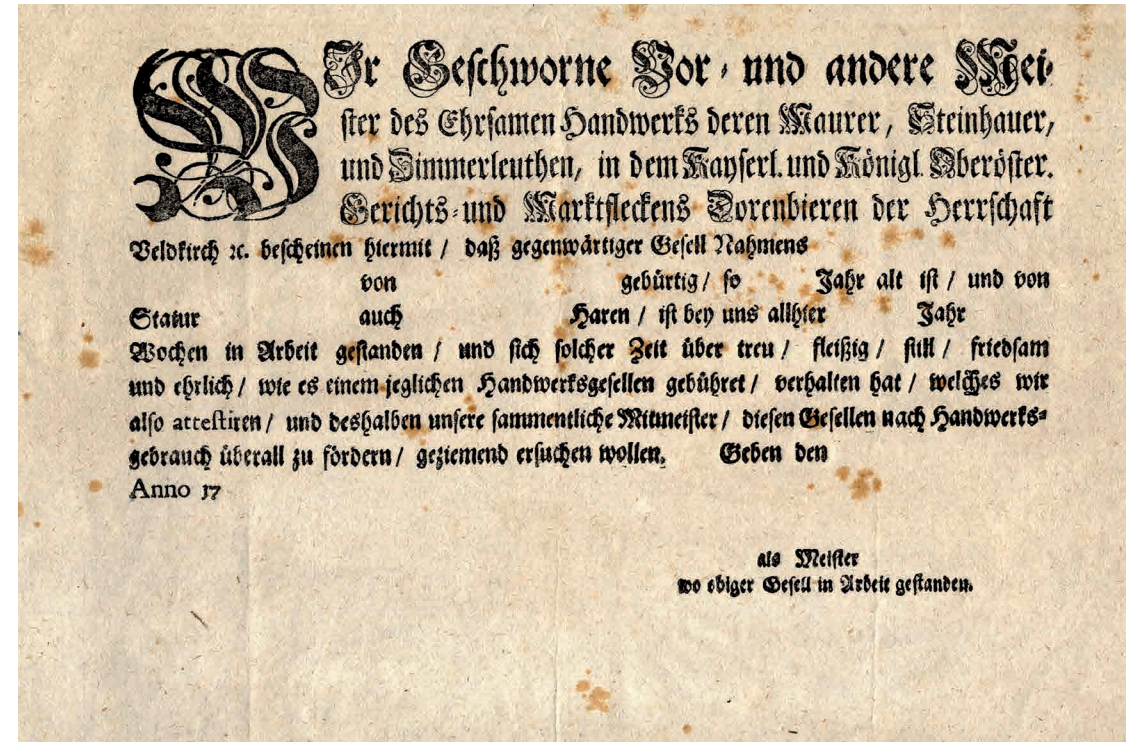 WIr Geschworne Vor- und andere Mei-
ster des Ehrsamen Handwerks deren Maurer, Steinhauer,
und Zimmerleuthen, in dem Kayserl. und Königl. Oberöster.
Gerichts- und Marktfleckens Dorenbieren der Herrschaft
Veldkirch ꝛc. bescheinen hiermit / daß gegenwärtiger Gesell Nahmens
von gebürtig / so Jahr alt ist / und von
Statur auch Haren / ist bey uns allhier Jahr
Wochen in Arbeit gestanden / und sich solcher Zeit über treu / fleißig / still / friedsam
und ehrlich / wie es einem jeglichen Handwerksgesellen gebühret / verhalten hat / welches wir
also attestiren / und deshalben unsere sammentliche Mitmeister / diesen Gesellen nach Handwerks-
gebrauch überall zu fördern / geziemend ersuchen wollen. Geben den
Anno 17
als Meister
wo obiger Gesell in Arbeit gestanden.